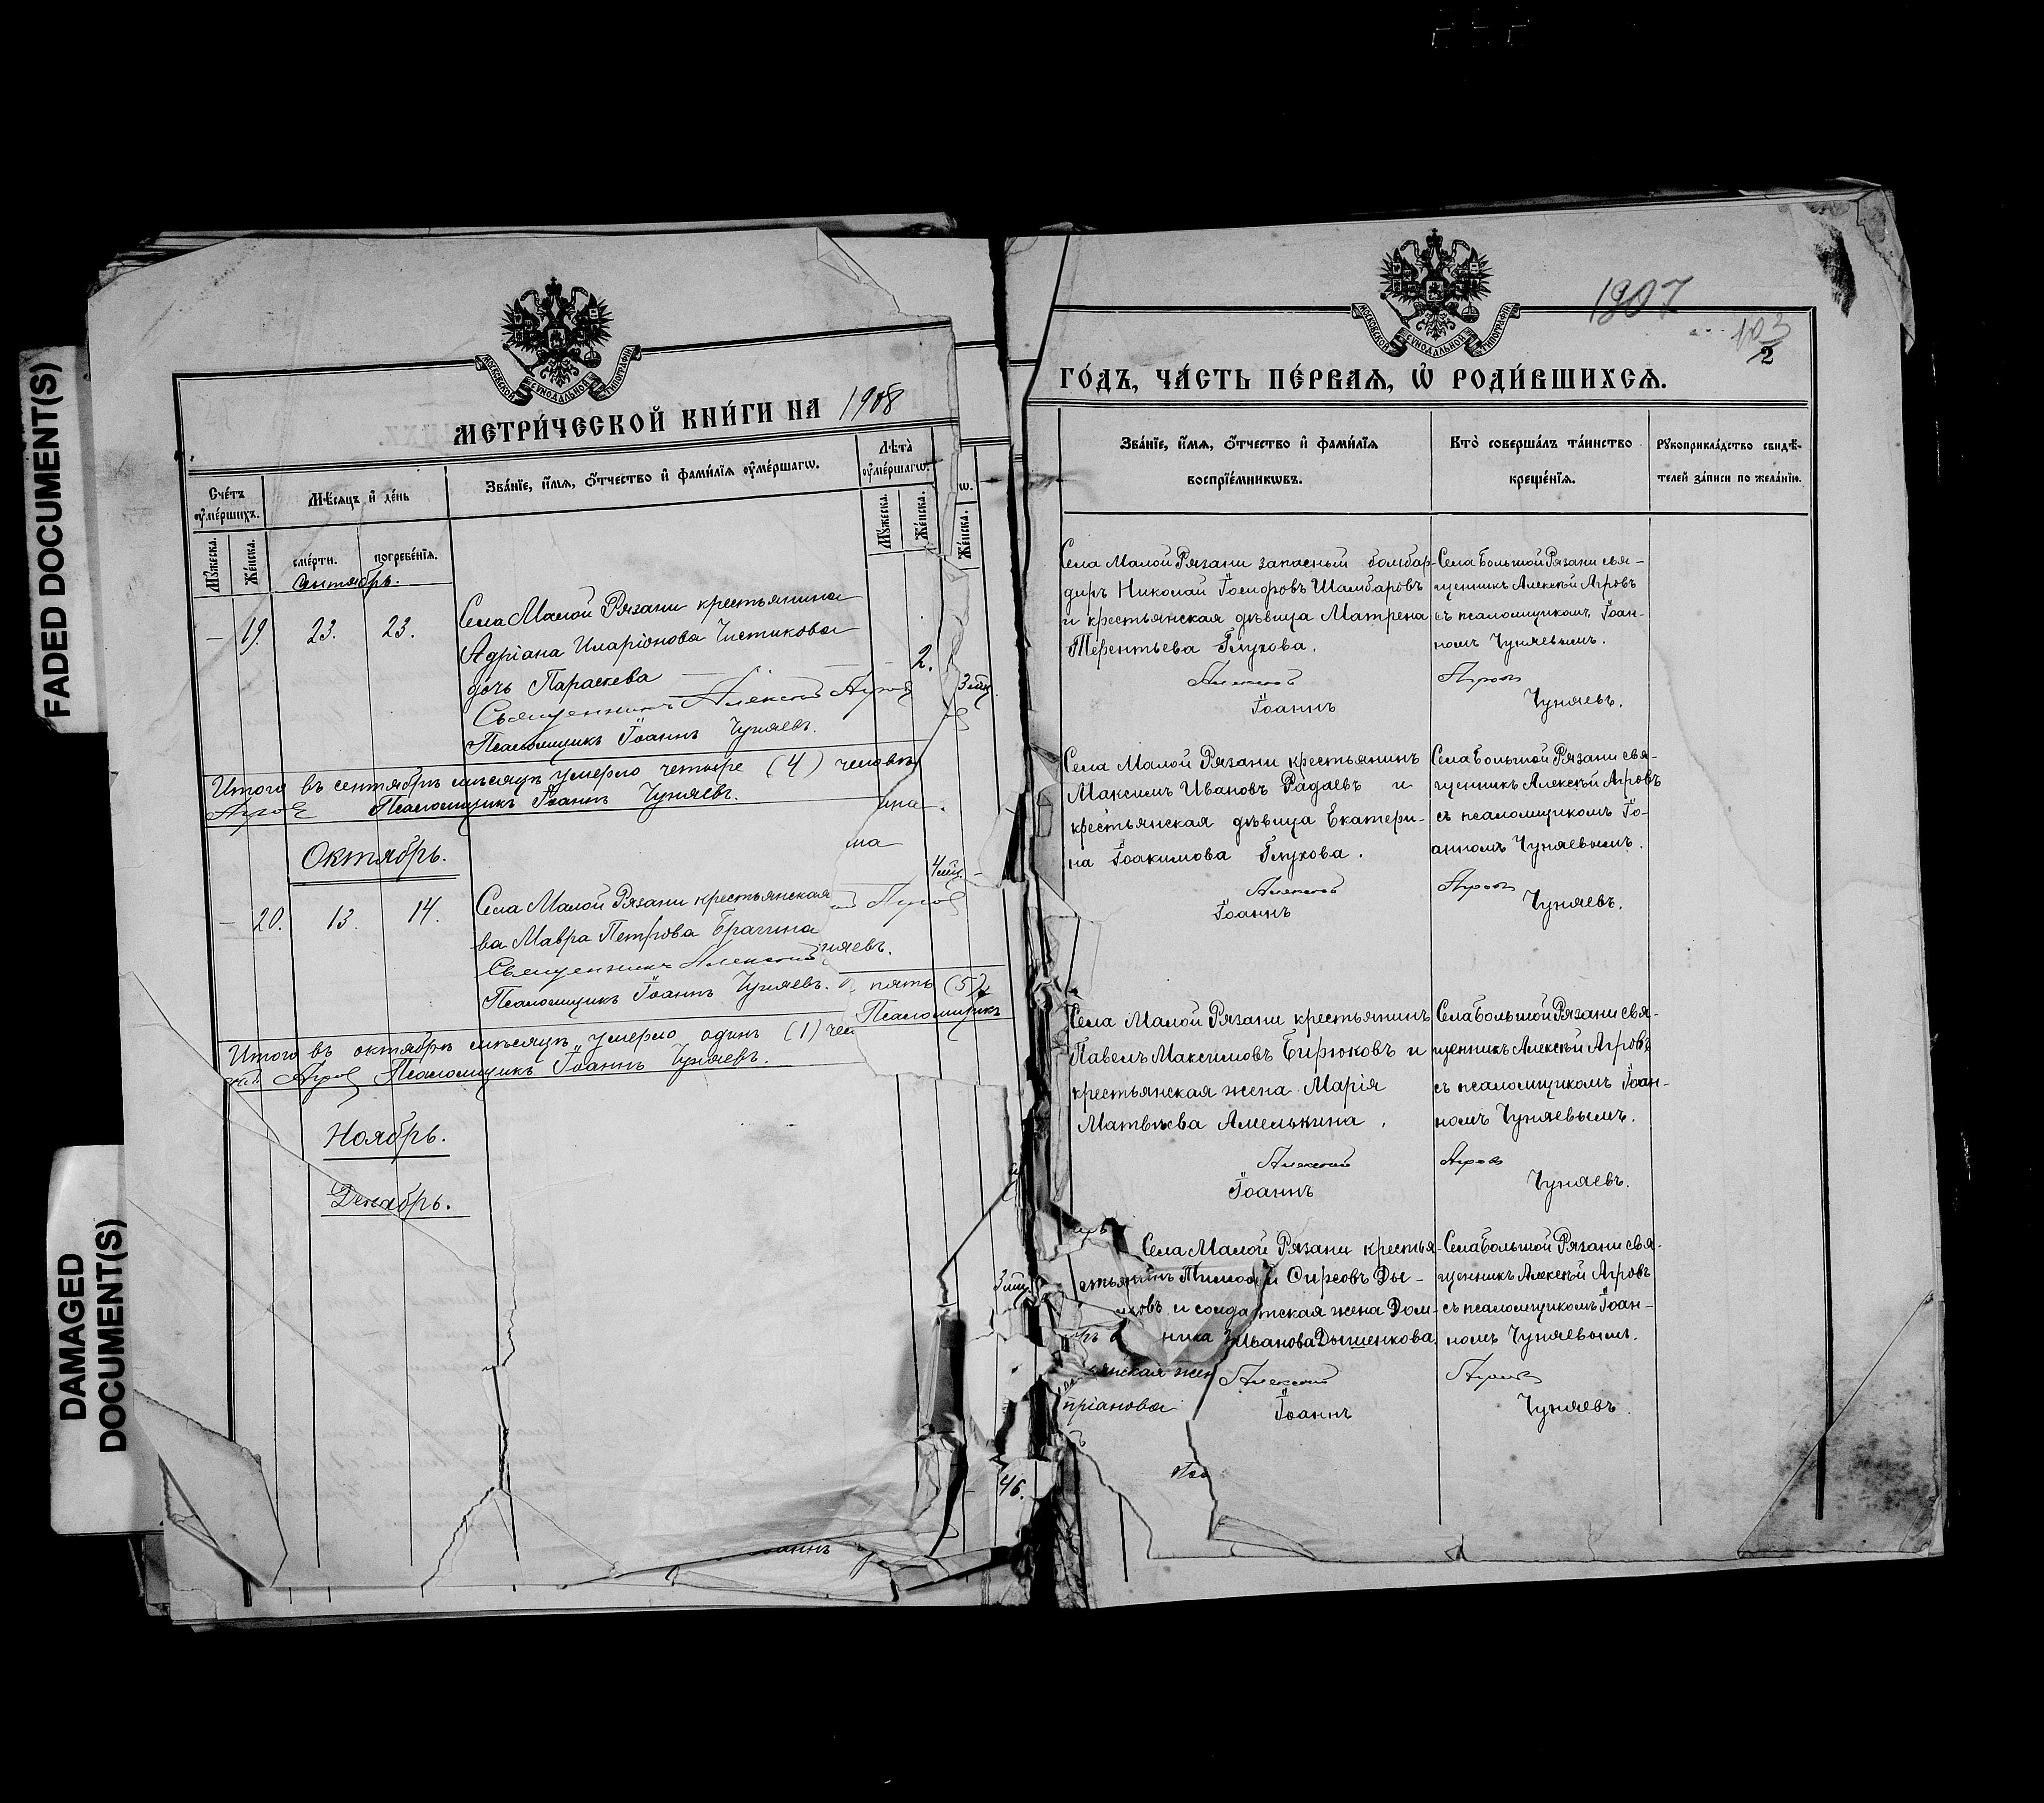 FADED DOCUMENT(S)
DAMAGED
DOCUMENT(S)
МОСКОВСКОЙ СѴНОДАЛЬНОЙ ТИПОГРАФІИ
МЕТРИ́ЧЕСКОЙ КНИ́ГИ НА 1908
Сче́тъ
ᲂу҆ме́ршихъ.
Мѣ́сяцъ и҆ де́нь
Зва́нїе, и҆́мя, ѻ҆́тчество и҆ фами́лїя ᲂу҆ме́ршагѡ.
Лѣта̀
ᲂу҆ме́ршагѡ.
Мꙋ́жеска.
Же́нска.
сме́рти.
погребе́нїя.
Мꙋ́жеска.
Же́нска.
ѡ.
Же́нска.
Сентябрь.
— 19. 23. 23.
Села Малой Рязани крестьянина
Адріана Иларіонова Чистикова
дочь Параскева
2.
3 мѣс.
Священникъ Алексѣй Агровъ
Псаломщикъ Іоаннъ Чуняевъ.
Итого въ сентябрѣ мѣсяцѣ умерло четыре (4) человѣк
Агровъ Псаломщикъ Іоаннъ Чуняевъ.
ина
ма
Октябрь.
4 мѣс.
— 20. 13. 14.
Села Малой Рязани крестьянская
ва Мавра Петрова Брагина
Священникъ Алексѣй
Агровъ
няевъ.
Псаломщикъ Іоаннъ Чуняевъ.
пять (5)
Псаломщикъ
Итого въ октябрѣ мѣсяцѣ умерло одинъ (1) чел
Агровъ Псаломщикъ Іоаннъ Чуняевъ.
Ноябрь.
Декабрь.
46.
оаннъ
МОСКОВСКОЙ СѴНОДАЛЬНОЙ ТИПОГРАФІИ
1907
103
2
ГО́ДЪ, ЧА́СТЬ ПЕ́РВАЯ, Ѡ҆ РОДИ́ВШИХСЯ.
Зва́нїе, и҆́мя, ѻ҆́тчество и҆ фами́лїя
воспрїе́мникѡвъ.
Кто̀ соверша́лъ та́инство
креще́нїя.
Рꙋкоприкла́дство свидѣ́-
телей за́писи по жела́нїи.
Села Малой Рязани запасный бомбар-
диръ Николай Шамбаровъ
и крестьянская дѣвица Матрена
Терентьева Глухова.
Алексѣй
Іоаннъ
Села Большой Рязани свя-
щенникъ Алексѣй Агровъ
съ псаломщикомъ Іоан-
номъ Чуняевымъ.
Агровъ
Чуняевъ.
Села Малой Рязани крестьянинъ
Максимъ Ивановъ Радаевъ и
крестьянская дѣвица Екатери-
на Іоакимова Глухова.
Алексѣй
Іоаннъ
Села Большой Рязани свя-
щенникъ Алексѣй Агровъ
съ псаломщикомъ Іо-
анномъ Чуняевымъ.
Агровъ
Чуняевъ.
Села Малой Рязани крестьянинъ
Павелъ Максимовъ Бирюковъ и
крестьянская жена Марія
Матвѣева Амелькина.
Алексѣй
Іоаннъ
Села Большой Рязани свя-
щенникъ Алексѣй Агровъ
съ псаломщикомъ Іоан-
номъ Чуняевымъ.
Агровъ
Чуняевъ.
Села Малой Рязани крестья-
и солдатская жена Дом-
ника Иванова Дышенкова.
Алексѣй
Іоаннъ
Села Большой Рязани свя-
щенникъ Алексѣй Агровъ
съ псаломщикомъ Іоан-
номъ Чуняевымъ.
Агровъ
Чуняевъ.
пріанова